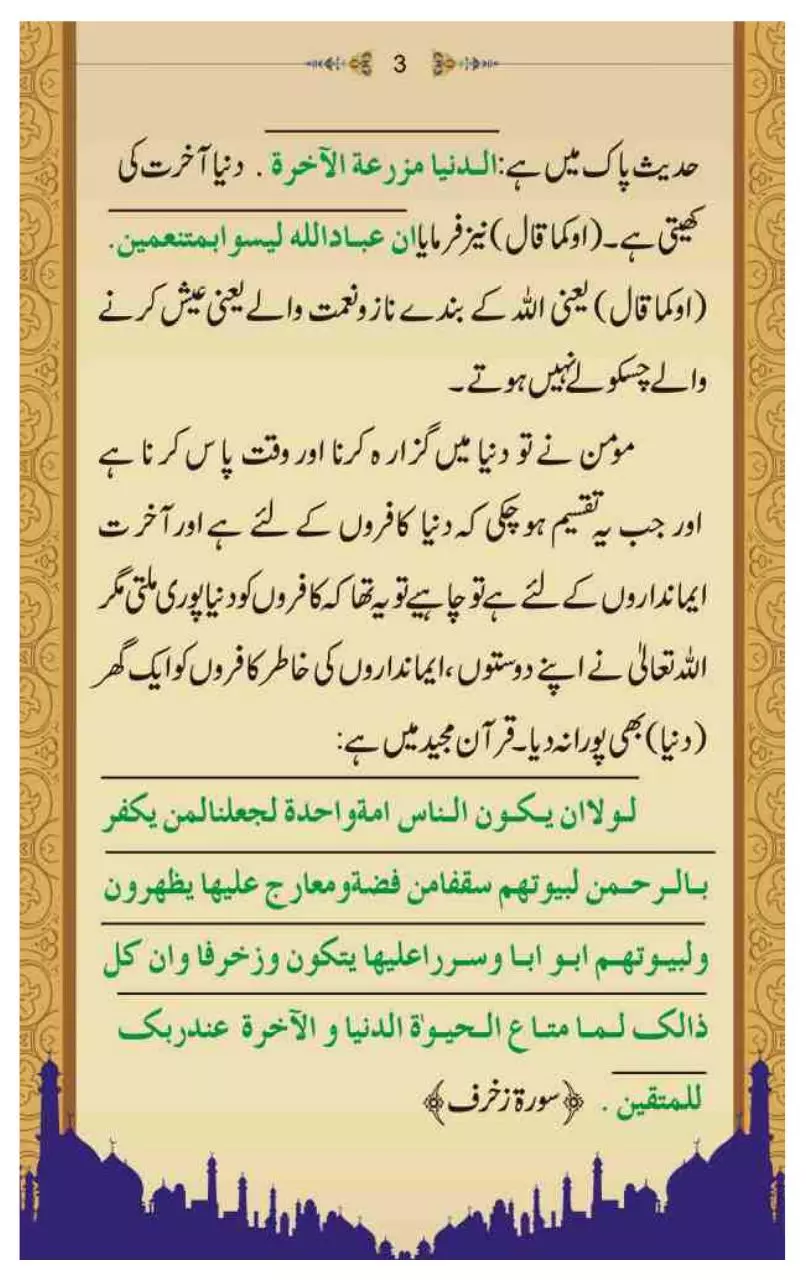 3
حدیث پاک میں ہے: الدنیا مزرعة الآخرة . دنیا آخرت کی
کھیتی ہے۔ (اوکما قال) نیز فرمایا ان عبادالله لیسوابمتنعمین.
(اوکما قال) یعنی اللہ کے بندے ناز و نعمت والے یعنی عیش کرنے
والے چسکولے نہیں ہوتے ۔
مؤمن نے تو دنیا میں گزارہ کرنا اور وقت پاس کرنا ہے
اور جب یہ تقسیم ہوچکی کہ دنیا کافروں کے لئے ہے اور آخرت
ایمانداروں کے لئے ہے تو چاہیے تو یہ تھا کہ کافروں کو دنیا پوری ملتی مگر
اللہ تعالیٰ نے اپنے دوستوں، ایمانداروں کی خاطر کافروں کو ایک گھر
(دنیا) بھی پورا نہ دیا۔ قرآن مجید میں ہے:
لولاان یکون الناس امةواحدة لجعلنالمن یکفر
بالرحمن لبیوتهم سقفامن فضةومعارج علیها یظهرون
ولبیوتهم ابوابا وسررا علیها یتکون وزخرفا وان کل
ذالک لما متاع الحیوٰة الدنیا و الآخرة عندربک
للمتقین . ﴿سورة زخرف﴾